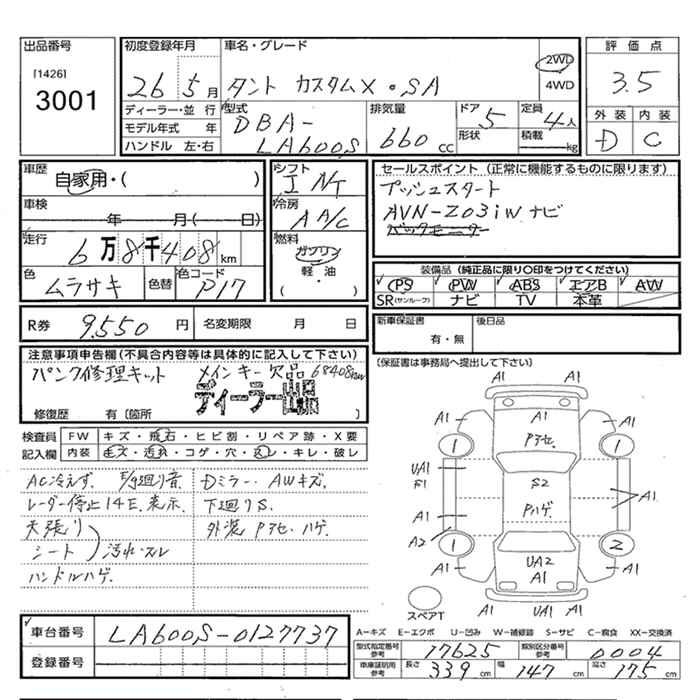 出品番号
[1426]
3001
初度登録年月
26 5月
車名・グレード
タント カスタムX・SA
2WD
4WD
評価点
3.5
外装 内装
D C
ディーラー・並行
モデル年式 年
ハンドル 左・右
型式
DBA-
LA600S
排気量
660 cc
ドア 5
形状
定員 4人
積載 kg
車歴
自家用・( )
車検
年 月( 日)
走行
6万8千408 km
色
ムラサキ
色替
色コード
P17
シフト
I N AT
冷房
A A/C
燃料
ガソリン
軽・油
( ・ )
セールスポイント(正常に機能するものに限ります)
プッシュスタート
AVN-Z03iW ナビ
バックモニター
装備品(純正品に限り〇印をつけてください)
PS PW ABS エアB AW
SR(サンルーフ) ナビ TV 本革
R券 9.550 円
名変期限 月 日
新車保証書
有・無
後日品
(保証書は事務局へ提出して下さい)
注意事項申告欄(不具合内容等は具体的に記入して下さい)
パンク修理キット メインキー欠品 68408km
ディーラー出品
修復歴 有(箇所 )
検査員
記入欄
FW キズ・飛石・ヒビ割・リペア跡・X要
内装 キズ・汚れ・コゲ・穴・スレ・キレ・破レ
AC冷えず. F/9廻り音 Dミラー. AWキズ.
レーダー停止14E.表示. 下廻りS.
天張り
シート 汚れ・スレ
ハンドルハゲ.
外装 Pアセ. ハゲ.
A1 A1
A1 A1 A1
Pアセ.
1 1
UA1
S1
S2
Pハゲ
A1
A1
A2
1 2
UA2
A1
A1 A1
A1 UA1 A1
スペアT
車台番号 LA600S-0127737
登録番号
A-キズ E-エクボ U-凹み W-補修跡 S-サビ C-腐食 XX-交換済
型式指定番号
参考
17625
類別区分番号
参考
0004
車庫証明用
参考
長さ 339 cm
幅 147 cm
高さ 175 cm